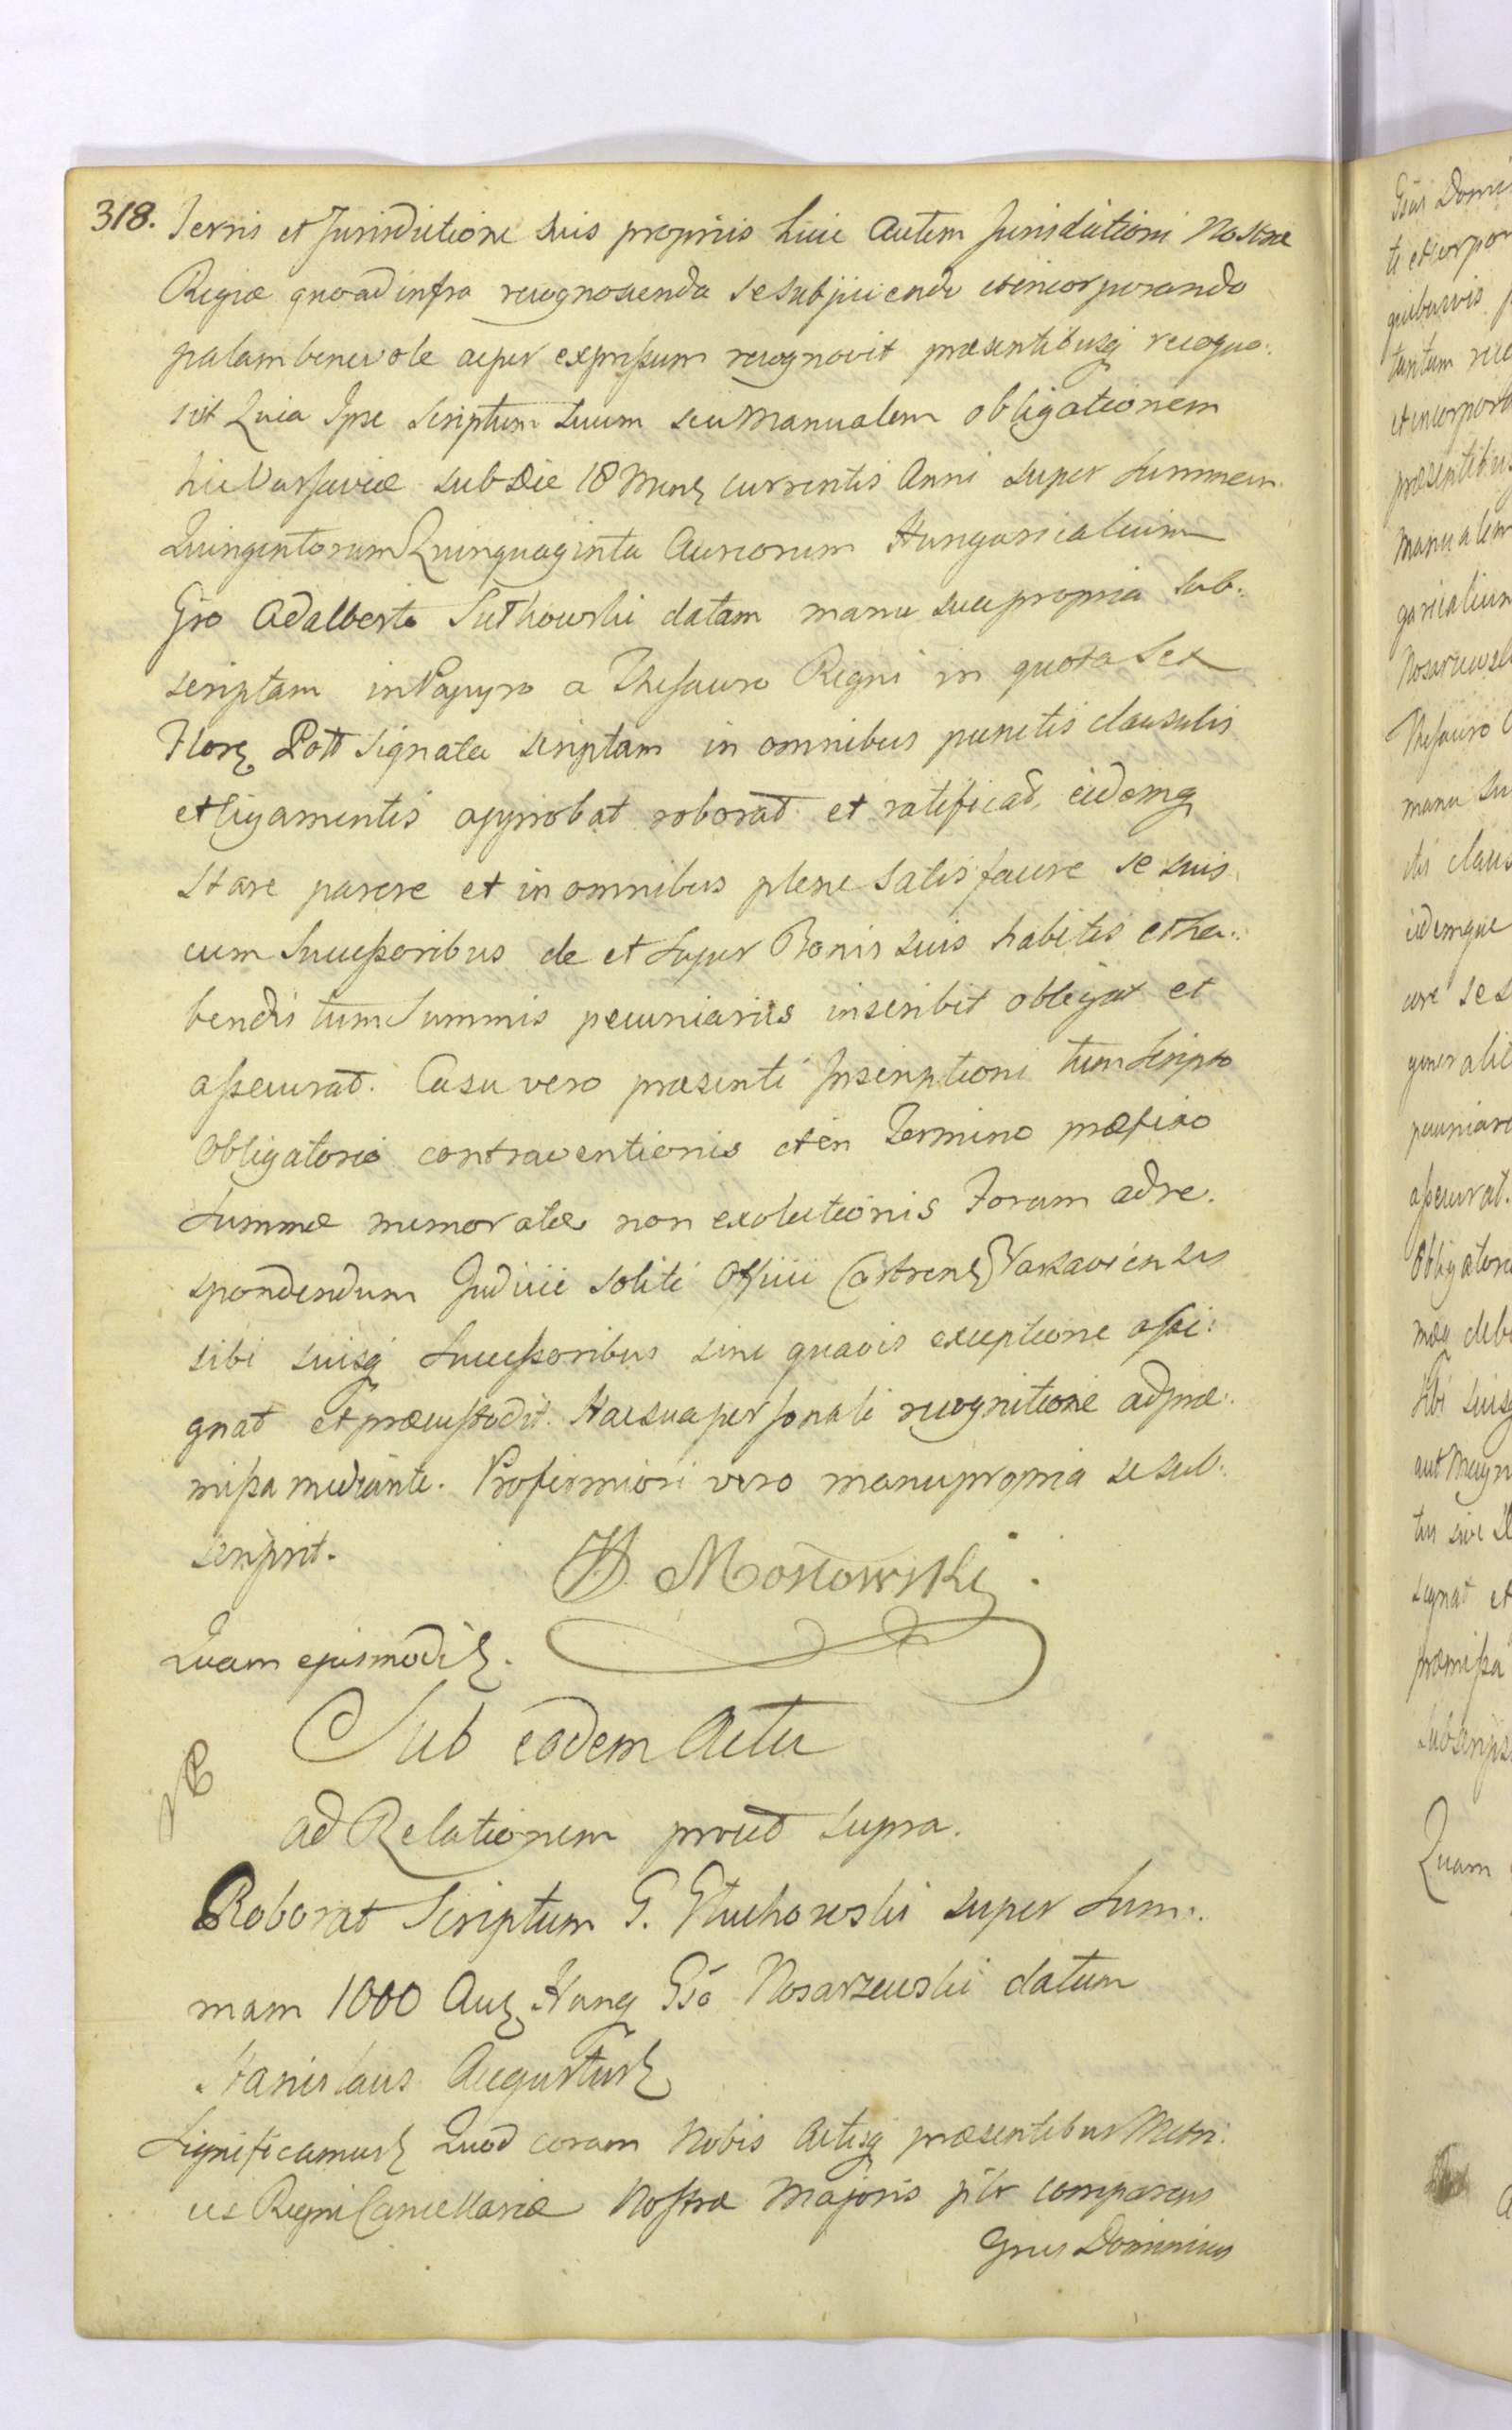 318. Terris et Jurisdictione suis propriis huic autem Jurisdictioni Nostræ
Regiæ quoad infra recognoscenda se subjiicendo et incorporando
palam benevole ac per expressum recognovit præsentibusq recogno:
scit Quia Ipse Scriptum suum seu Manualem obligationem
hic Varsaviæ sub Die 18 Mens currentis Anni super Summam
Quingentorum Quinquaginta Aureorum Hungaricalium
Gso Adalberto Suthowski datam manu sua propria sub:
scriptam in Papyro a Thesauro Regni in quota Sex
Flor Poll signata scriptam in omnibus punctis clausulis
et ligamentis approbat roborat et ratificat, eidemq
stare parere et in omnibus plene satisfacere se suis
cum Successoribus de et super Bonis suis habitis et ha:
bendis tum Summis pecuniariis inscribit obligat et
assecurat. Casu vero præsenti Inscriptioni tum Scripto
Obligatorio contraventionis et in Termino præfixo
Summæ memoratæ non exolutionis Forum ad re.
spondendum Judicii soliti Officii Castrens Varsaviensis
sibi suisq Successoribus sine quavis exceptione assi:
gnat et præcustodit. Hac sua personali recognitione ad præ:
missa mediante. Pro firmiori vero manu propria se sub:
scripsit.
Mostowski.
Quam ejusmodi
Sub eodem Actu
ad Relationem prout supra.
Roborat Scriptum G. Głuchowski super Sum:
mam 1000 Aur Hung Gso Nosarzewski datum
Stanislaus Augustus
Significamus Quod coram Nobis Actisq præsentibus Metri:
ces Regni Cancellariæ Nostræ Majoris pltr comparens
Gnus Dominicus
Gsus Domi
et incorpora
præsentibus
Manualem
garicalium
Nosarzewsk
Thesauro
manu su
tis claus
eidemque
generalit
assecurat.
Obligatorio
sibi suisq
aut Magn
signat et
præmissa
subscrips
Quam